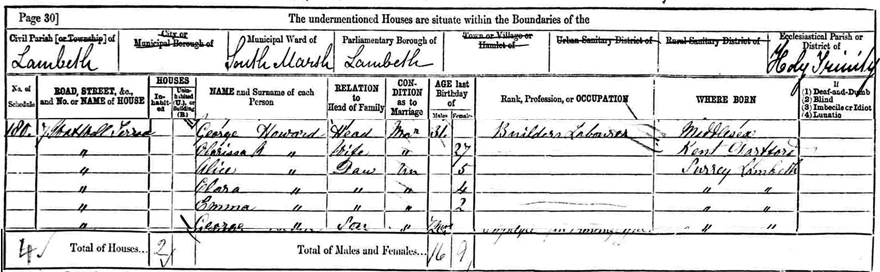 Page 30] The undermentioned Houses are situate within the Boundaries of the
Civil Parish [or Township] of City or Municipal Borough of Municipal Ward of Parliamentary Borough of Town or Village or Hamlet of Urban Sanitary District of Rural Sanitary District of Ecclesiastical Parish or District of
Lambeth South Marsh Lambeth Holy Trinity
No. of Schedule ROAD, STREET, &c., and No. or NAME of HOUSE HOUSES Inhabited Uninhabited (U.), or Building (B.) NAME and Surname of each Person RELATION to Head of Family CONDITION as to Marriage AGE last Birthday of Males Females Rank, Profession, or OCCUPATION WHERE BORN If (1) Deaf-and-Dumb (2) Blind (3) Imbecile or Idiot (4) Lunatic
180 George Howard Head Mar 31 Builders Labourer Middlesex
" Clarissa " Wife " 27 Kent Dartford
" Alice " Daur Un 5 Surrey Lambeth
" Clara " " 4 " "
" Emma " " 2 " "
" George " Son " " "
4 Total of Houses... 2 Total of Males and Females... 16 9